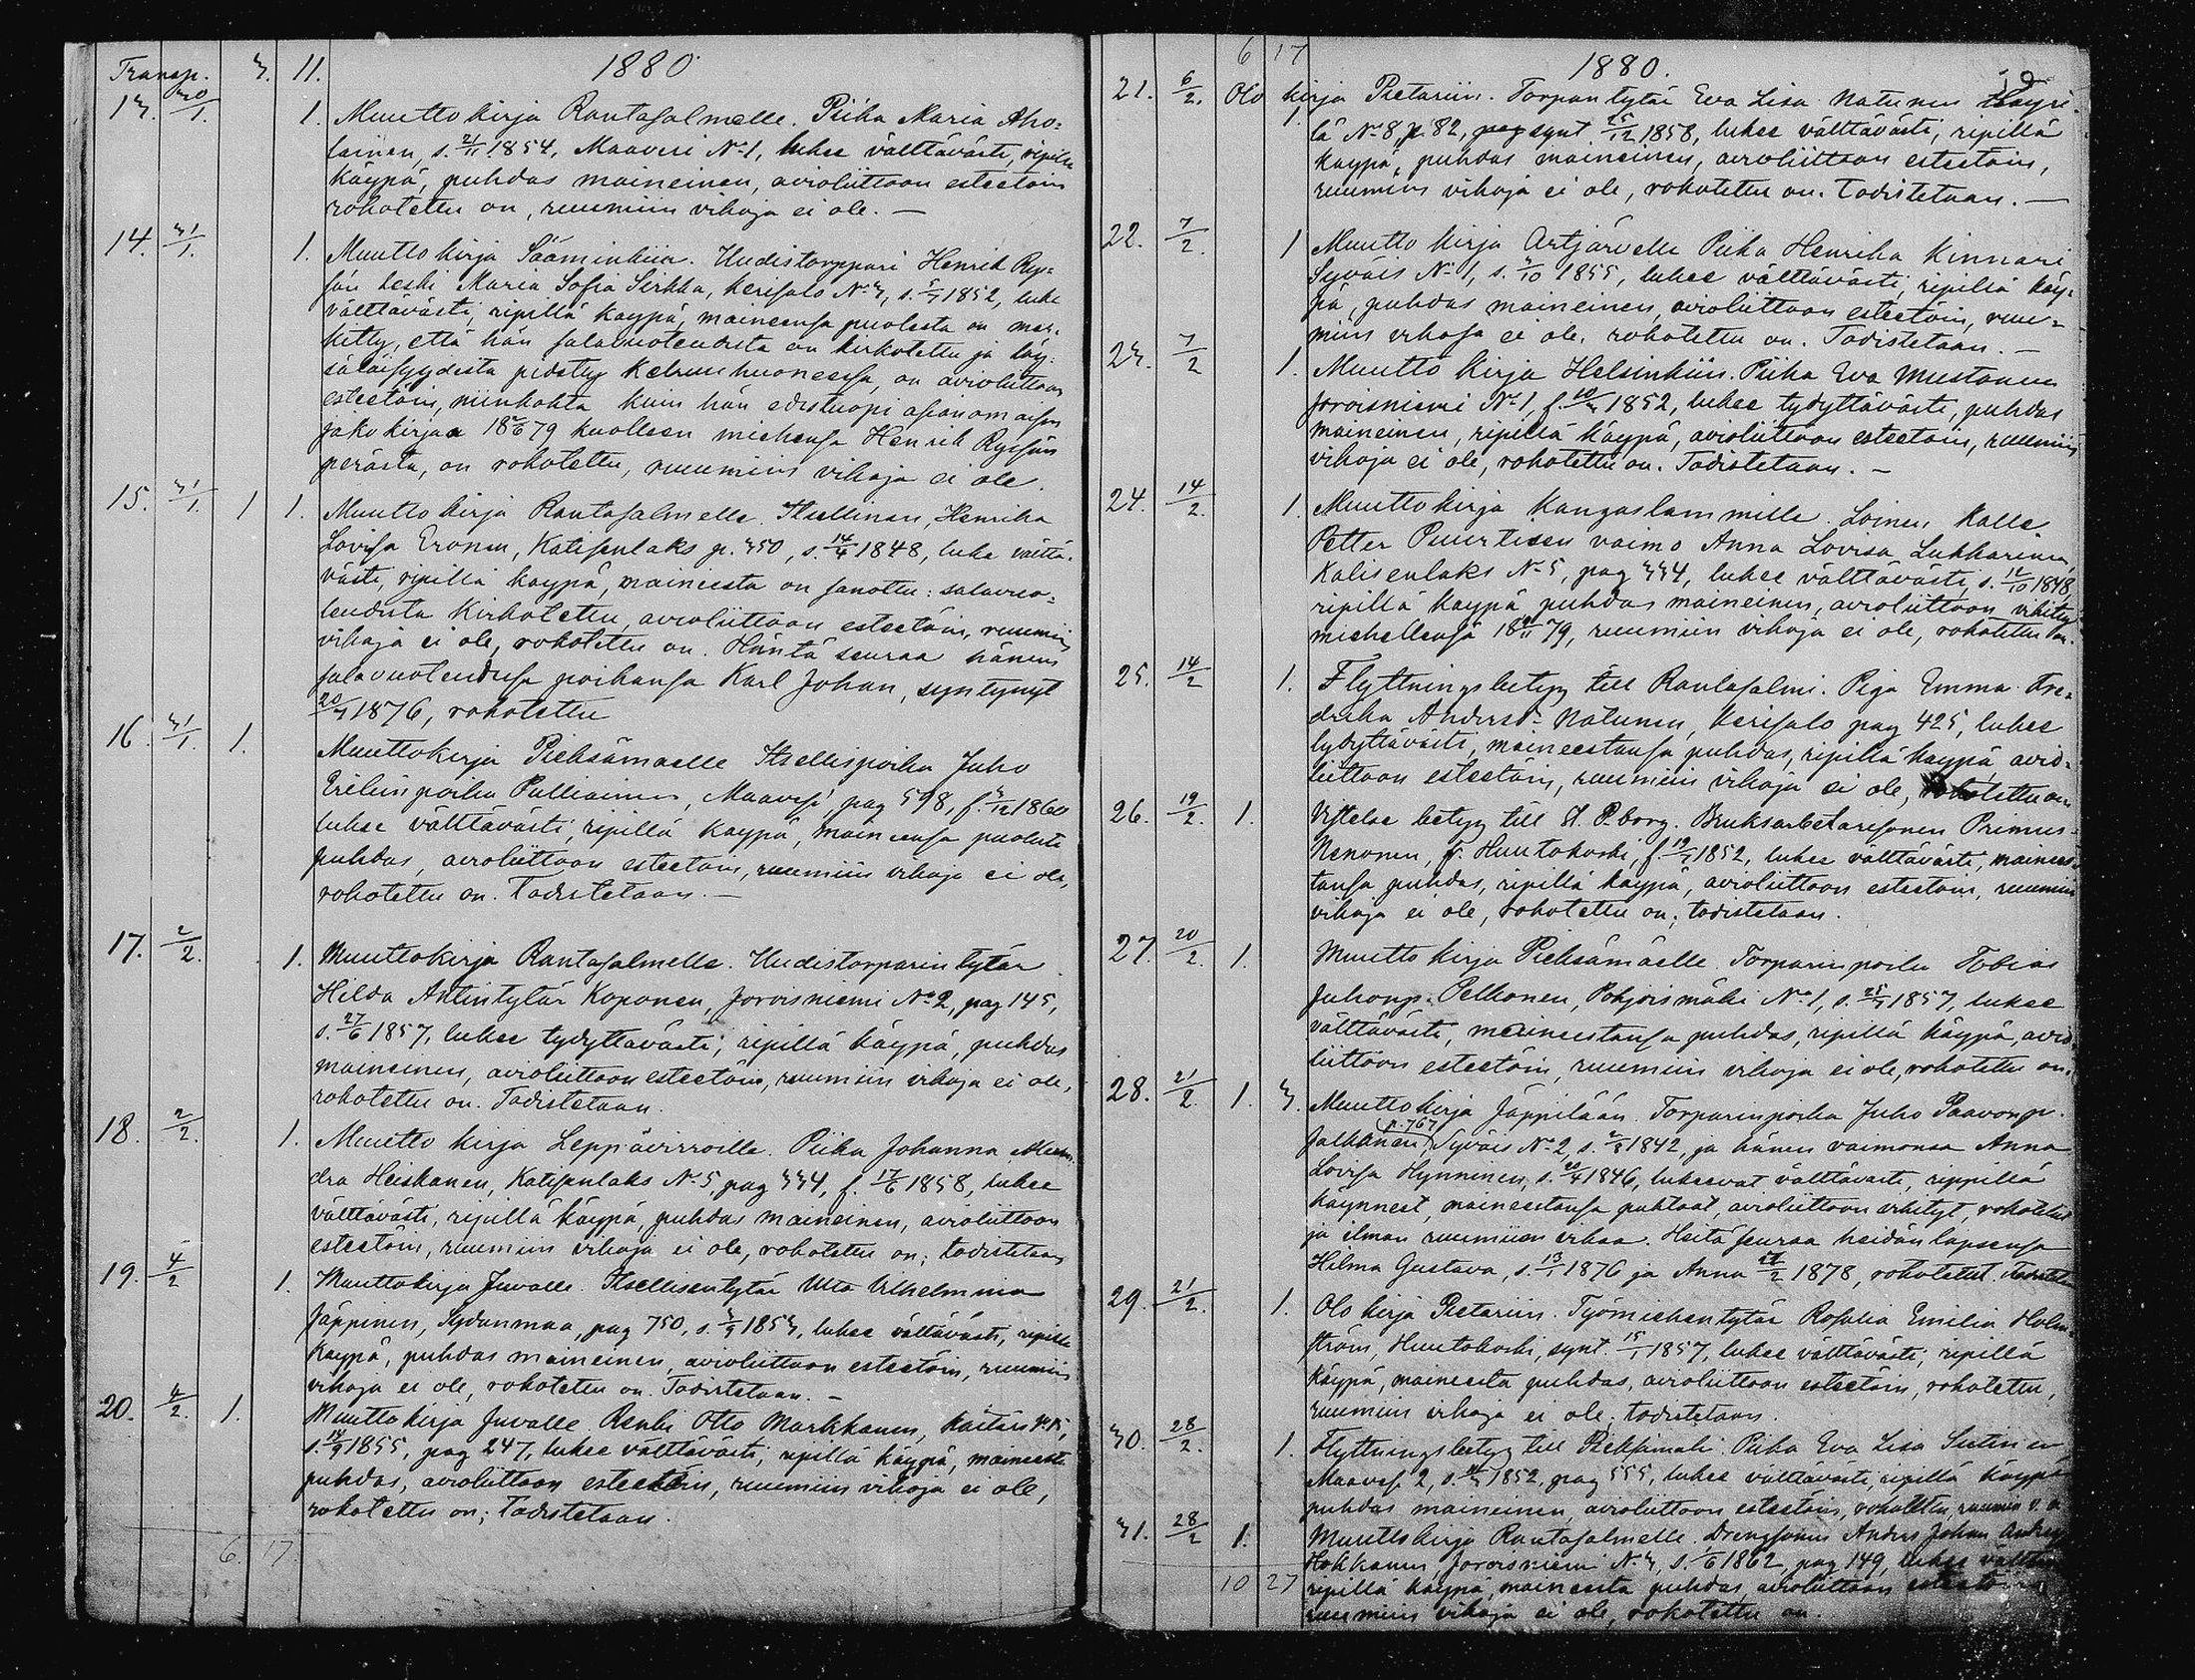 Transp. 3. 11. 1880
13. 30/1. 1. Muuttokirja Rantasalmelle. Piika Maria Aho=
lainen, s. 21/11 1854, Maaveri No 1, lukee välttävästi, ripillä
käypä, puhdas maineinen, avioliittoon esteetöin
rokotettu on, ruumiin vikoja ei ole. —
14. 31/1. 1. Muutto kirja Sääminkiin. Uudistorppari Henrik Ryy=
sän leski Maria Sofia Sirkka, Kerisalo No 3, s. 5/7 1852, luke
välttävästi, ripillä käypä, maineensa puolesta on mer=
kitty, että hän salavuoteudesta on kirkotettu ja
pidetty Kehruuhuoneessa, on avioliittoon
esteetöin, niinkohta kuin hän edestuopi asianomaisen
jako kirjaa 1879 kuolleen miehensä Henrik Ryysän
perästä, on rokotettu, ruumiin vikoja ei ole.
15. 31/1. 1 1. Muutto kirja Rantasalmelle. Itsellinen, Henrika
Lovisa Eronen, Katisenlaks p. 350, s. 14/4 1848, luke vältta=
västi, ripillä käypä, maineesta on sanottu: salavuo=
teudesta Kirkotettu, avioliittoon esteetöin, ruumiin
vikoja ei ole, rokotettu on. Häntä seuraa hänen
salavuoteudessa poikansa Karl Johan, syntynyt
20/7 1876, rokotettu
16. 31/1. 1. Muuttokirja Pieksämaelle Itsellispoika Juho
Erikinpoika Pulliainen, Maavesi pag 598, f. 3/12 1860
lukee välttävästi, ripillä käypä, maineensa puolesta
puhdas, avioliittoon esteetöin, ruumiin vikoja ei ole,
rokotettu on. Todistetaan. —
17. 2/2. 1. Muuttokirja Rantasalmelle. Uudistorparin tytär
Hilda Antintytär Koponen, Joroisniemi No 2, pag 145,
s. 27/6 1857, lukee tydyttävästi, ripillä käypä, puhdas
maineinen, avioliittoon esteetöin, ruumiin vikoja ei ole,
rokotettu on. Todistetaan.
18. 2/2. 1. Muutto kirja Leppävirroille. Piika Johanna
Heiskanen, Katisenlaks No 5, pag 334, f. 17/6 1858, lukee
välttävästi, ripillä käypä, puhdas maineinen, avioliittoon
esteetöin, ruumiin vikoja ei ole, rokotettu on; todistetaan
19. 4/2 1. Muuttokirja Juvalle. Itsellisentytär Ulla Vilhelmina
Jäppinen, Sydänmaa, pag 750, s. 3/9 1853, lukee välttävästi, ripillä
käypä, puhdas maineinen, avioliittoon esteetöin, ruumiin
vikoja ei ole, rokotettu on. Todistetaan. —
20. 4/2. 1. Muutto kirja Juvalle Renki Otto Markkanen, Kaitais No 15,
s. 14/9 1855, pag 247, lukee välttävästi, ripillä käypä, maineesta
puhdas, avioliittoon esteetöin, ruumiin vikoja ei ole,
rokotettu on; Todistetaan.
6. 17.
6 17 1880.
21. 6/2. Olo kirja Pietariin. Torpan tytär Eva Lisa Natunen
1. lä No 8 p. 82, synt 25/12 1858, lukee välttävästi, ripillä
käypä, puhdas maineinen, avioliittoon esteetöin,
ruumiin vikoja ei ole, rokotettu on. Todistetaan. —
22. 7/2. 1 Muutto kirja Artjärvelle Piika Henrika Kinnari
Syväis No 1, s. 3/10 1855, lukee välttävästi, ripillä käy=
pä, puhdas maineinen, avioliittoon esteetöin, ruu=
miin vikoja ei ole, rokotettu on. Todistetaan. —
23. 7/2 1. Muutto kirja Helsinkiin. Piika Eva Mustonen
Joroisniemi No 1, f. 1852, lukee tydyttävästi, puhdas
maineinen, ripillä käypä, avioliittoon esteetöin, ruumiin
vikoja ei ole, rokotettu on. Todistetaan. —
24. 14/2. 1. Muutto kirja Kangaslammille. Loinen Kalle
Petter Puurtisen vaimo Anna Lovisa Lukkarinen,
Katisenlaks No 5, pag 334, lukee välttävästi, s. 12/10 1848,
ripillä käypä, puhdas maineinen, avioliittoon vihitty
miehellensä 1879, ruumiin vikoja ei ole, rokotettu on.
25. 14/2 1. Flyttningsbetyg till Rantasalmi. Piga Emma Fre=
drika Andersdr Natunen, Kerisalo pag 425, lukee
tydyttävästi, maineestansa puhdas, ripillä käypä, avio=
liittoon esteetöin, ruumiin vikoja ei ole, rokotettu on
26. 19/2. 1. Vistelse betyg till St. P-borg. Bruksarbetaresonen Primus
Nenonen, fr. Huutokoski, f. 19/7 1852, lukee välttävästi, mainees=
tansa puhdas, ripillä käypä, avioliittoon esteetöin, ruumiin
vikoja ei ole, rokotettu on; todistetaan.
27. 20/2. 1. Muutto kirja Pieksämäelle. Torparinpoika Tobias
Juhonp. Pelkonen, Pohjoismäki No 1, s. 25/7 1857, lukee
välttävästi, maineestansa puhdas, ripillä käypä, avio=
liittoon esteetöin, ruumiin vikoja ei ole, rokotettu on.
28. 21/2. 1. 3. Muutto kirja Jäppilään. Torparinpoika Juho Paavonp.
(p. 767)
Jalkanen, Syväis No 2, s. 2/8 1842, ja hänen vaimonsa Anna
Lovisa Hynninen, s. 20/4 1846, lukeevat välttävasti, rippillä
käynneet, maineestansa puhtaat, avioliittoon vihityt, rokotetut
ja ilman ruumiin vikaa. Heitä seuraa heidän lapsensa
Hilma Gustava, s. 13/1 1876 ja Anna 1878, rokotetut.
29. 21/2. 1. Olo kirja Pietariin. Työmiehentytär Rosalia Emilia Holm=
ström, Huutokoski, synt. 15/1 1857, lukee välttävästi, ripillä
käypä, maineesta puhdas, avioliittoon esteetöin, rokotettu,
ruumiin vikoja ei ole; todistetaan.
30. 28/2. 1. Flyttningsbetyg till Pieksämäki Piika Eva Lisa Sutinen
Maaves. 2, s. 1852, pag 555, lukee välttävästi, ripillä käypä
puhdas maineinen, avioliittoon esteetöin, rokotettu, ruumiin v. e.
31. 28/2 1. Muuttokirja Rantasalmelle. Drengsonen Anders Johan Anders
Hokkanen, Joroisniemi No 3, s. 1/6 1862, pag 149, lukee
10 27 ripillä käypä, maineesta puhdas, avioliittoon esteetöin
ruumiin vikoja ei ole, rokotettu on.